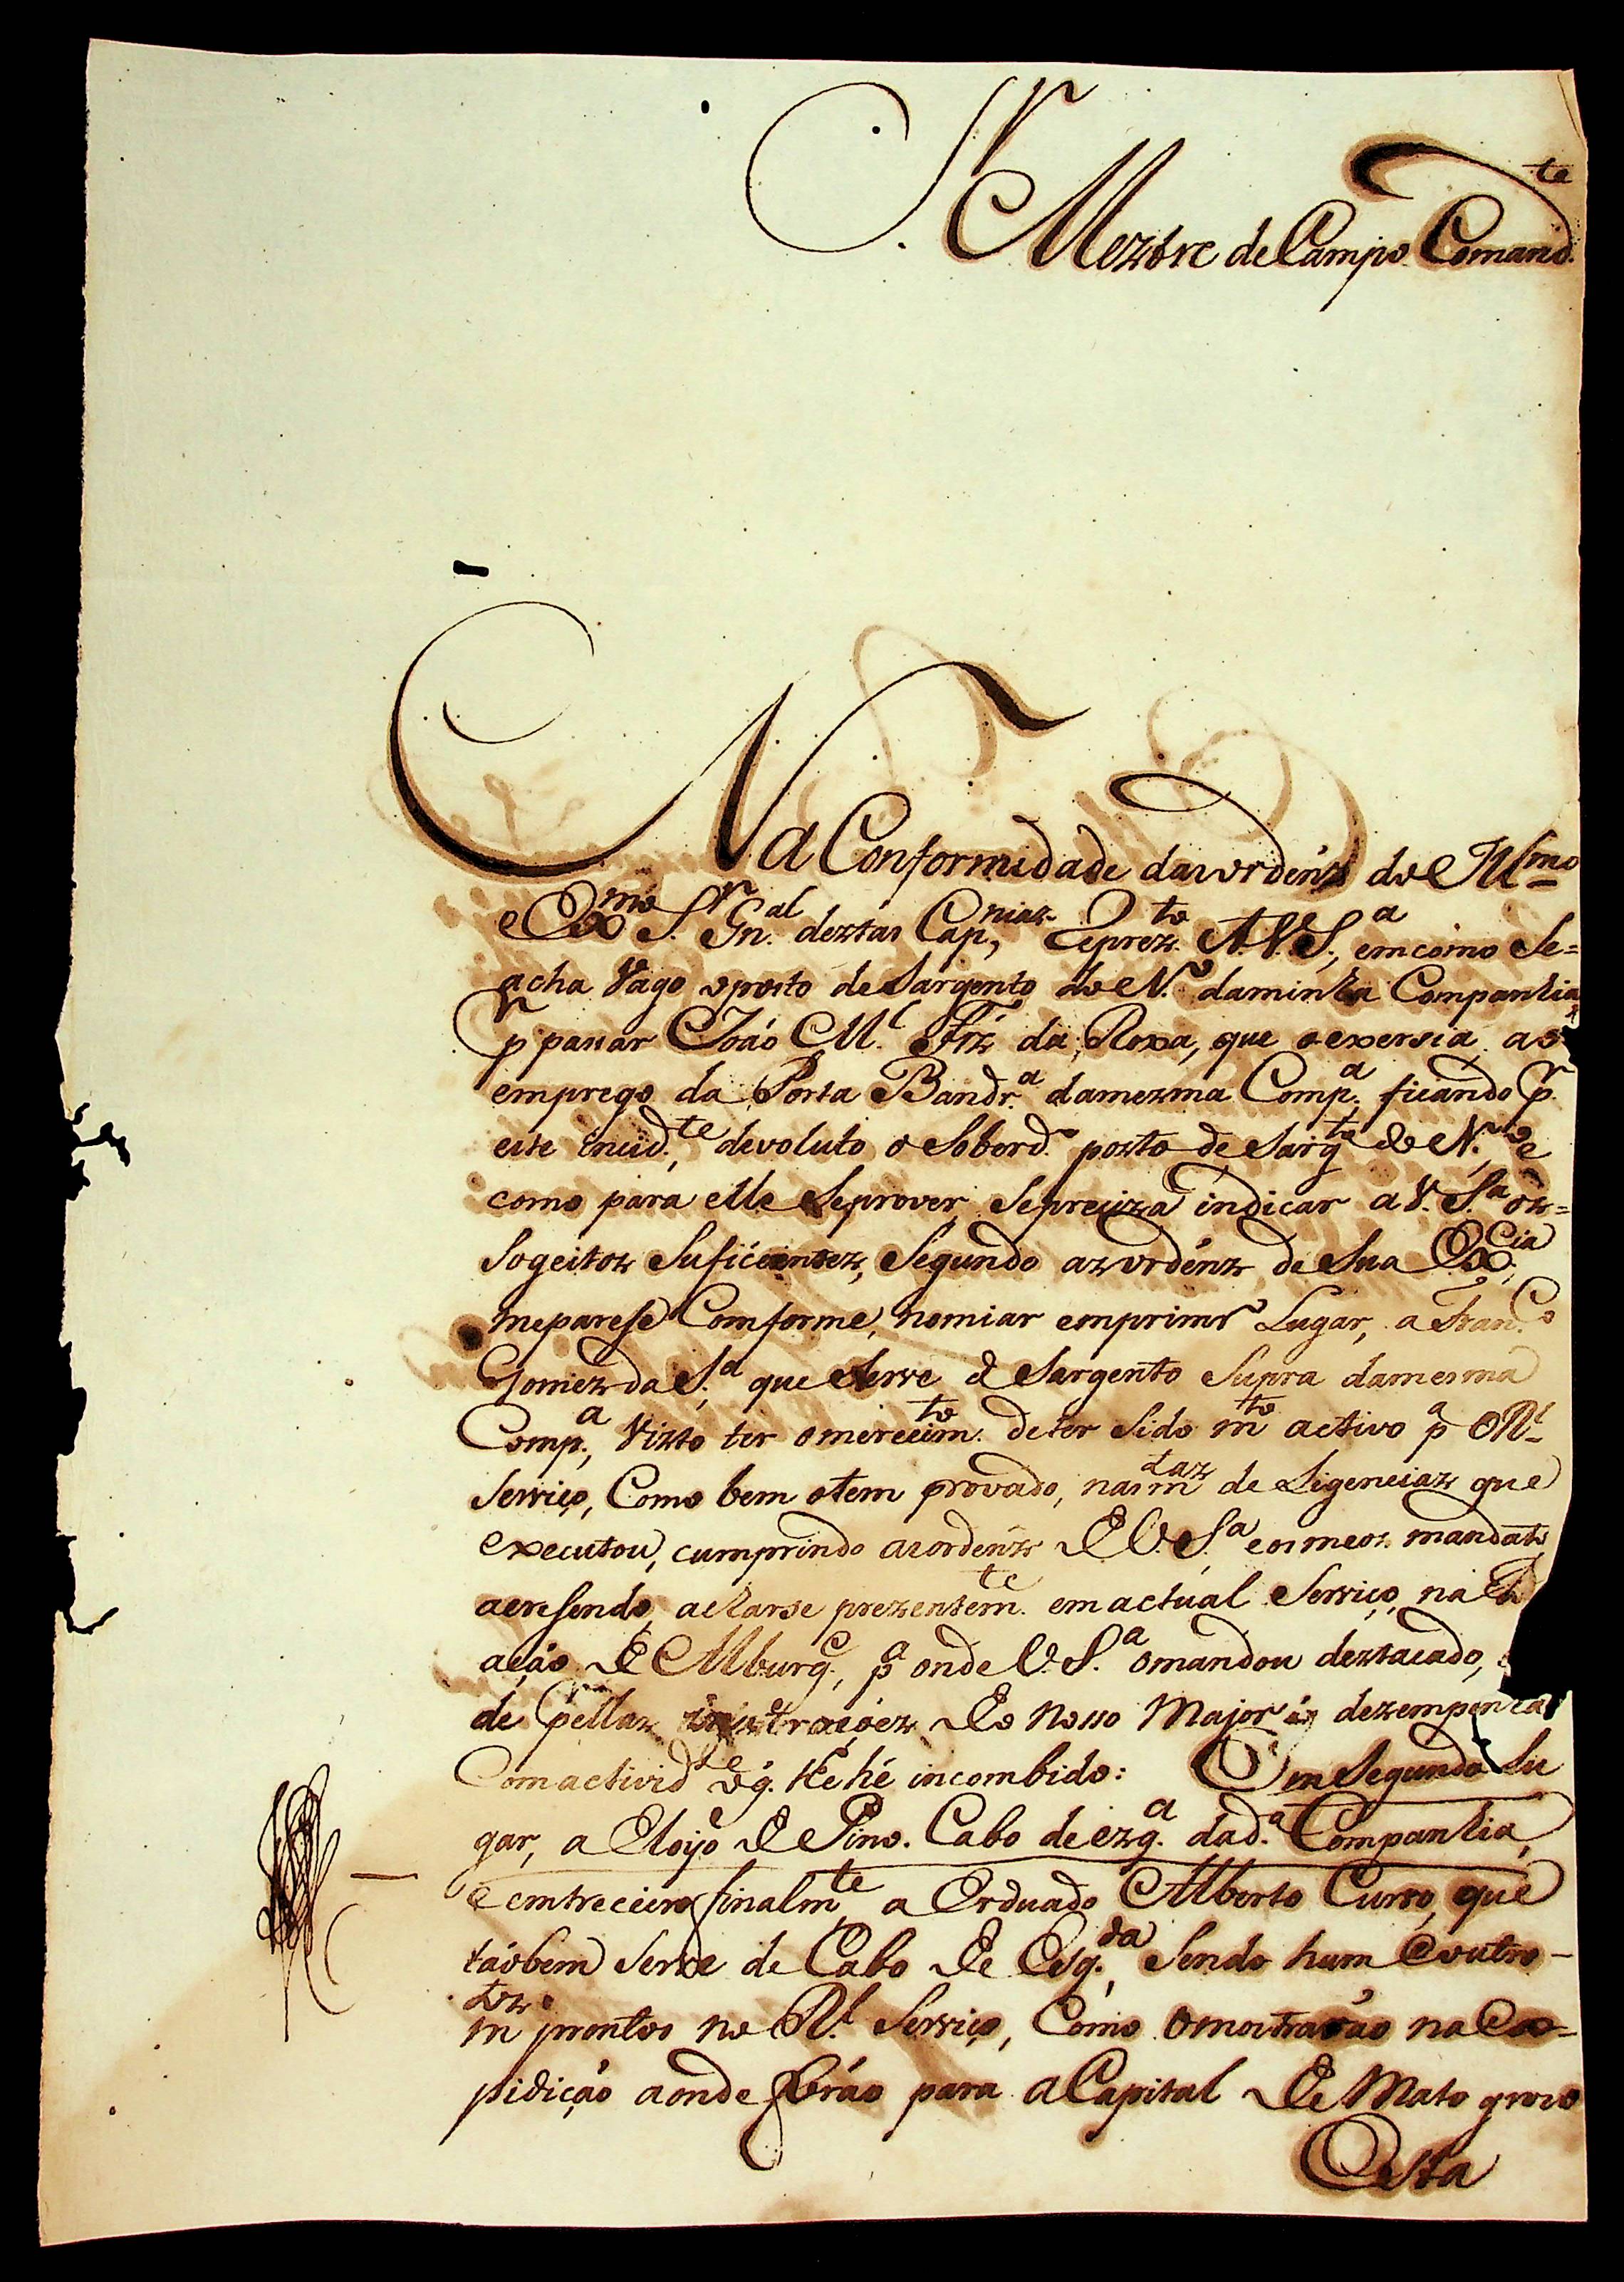 S.r Meztre de Campo Comand.te
Na Conformidade das ordénz do Ill.mo
e Ex.mo S.r Gn.al deztas Cap.niaz Reprez.to A.V.S.a, em como Se=
acha Vago o posto de Sargento do N.o da minha Companhia
p.r pasar João M.l Frz da Roxa, que o exersia ao
emprego da Porta Bandr.a da mezma Comp.a, ficando p.r
este incid.te, devoluto o Sobord.o posto de Sarg.to do N.o, e
como para elle Seprover, Sepreciza indicar a V. S.a oz=
Sogeitoz Suficientez, Segundo az ordénz de Sua Ex.cia,
meparese Comforme, nomiar emprimr.o Lugar, a Fran.co
Gomez da S.a, que Serve de Sargento Supra damesma
Comp.a, Vizto ter omerecim.to deter Sido m.to activo p.a o R.l
Serviço, Como bem otem provado, nas m.taz de Ligenciaz que
executou, cumprindo as ordénz de V. S.a e os meoz mandat.os
acresendo, acharse prezentem.te em actual Serviço, na
ação de Alburq.e, p.a onde V. S.a omandou deztacado,
de pellaz instruçõez do Nosso Major dezempenha
Com activid.de o q. lhe hé incombido: Em Segundo Lu
gar, a Eloyo de Pino. Cabo de ezq.a da d.a Companhia,
e emtreceiro finalm.te, a Orduado Alberto Curso, que
táobem Serve de Cabo de Esq.da, Sendo hum e outro-
m.toz prontos no R.l Serviço, Como omostrarão na Ex=
pidição aonde forão para a Capital de Mato groso
Esta